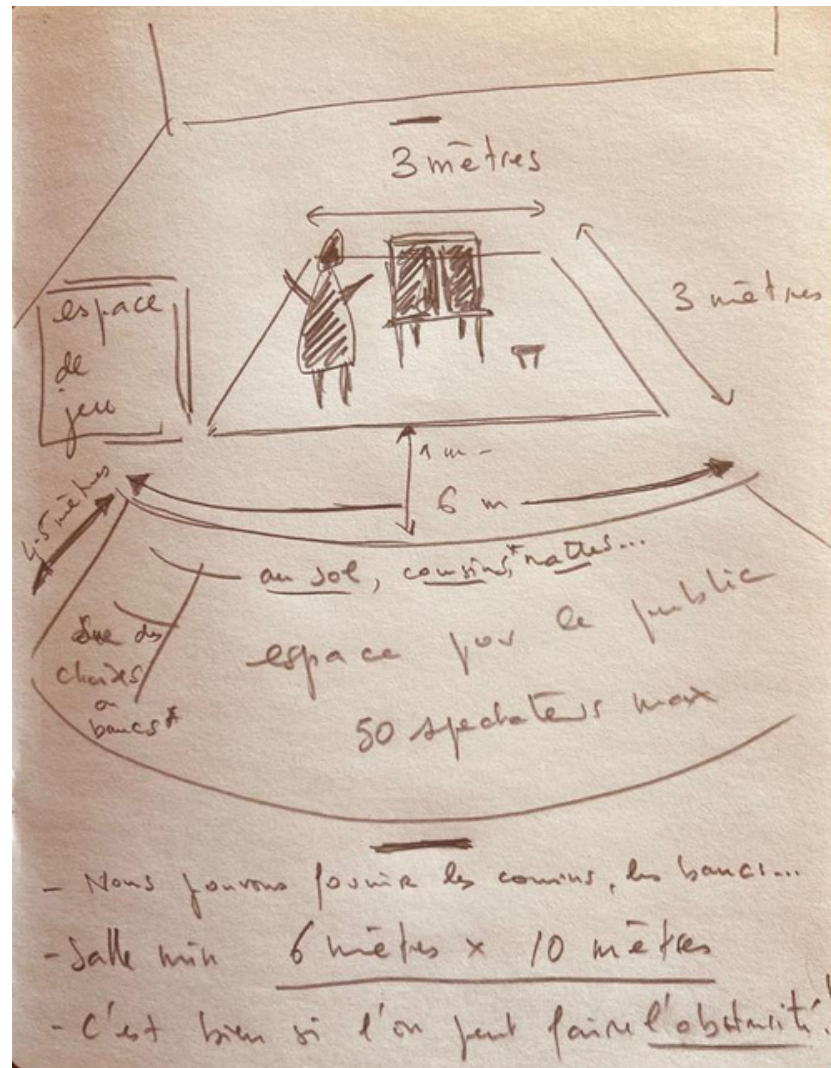 3 mètres
3 mètres
espace
de
jeu
1 m -
6 m
4-5 mètres
au sol, cousins*, nattes...
Sur des
chaises
ou
bancs*
espace pour le public
50 spectateurs max
- Nous pouvons fournir les cousins, les bancs...
- Salle min 6 mètres x 10 mètres
- C'est bien si l'on peut faire l'obscurité!